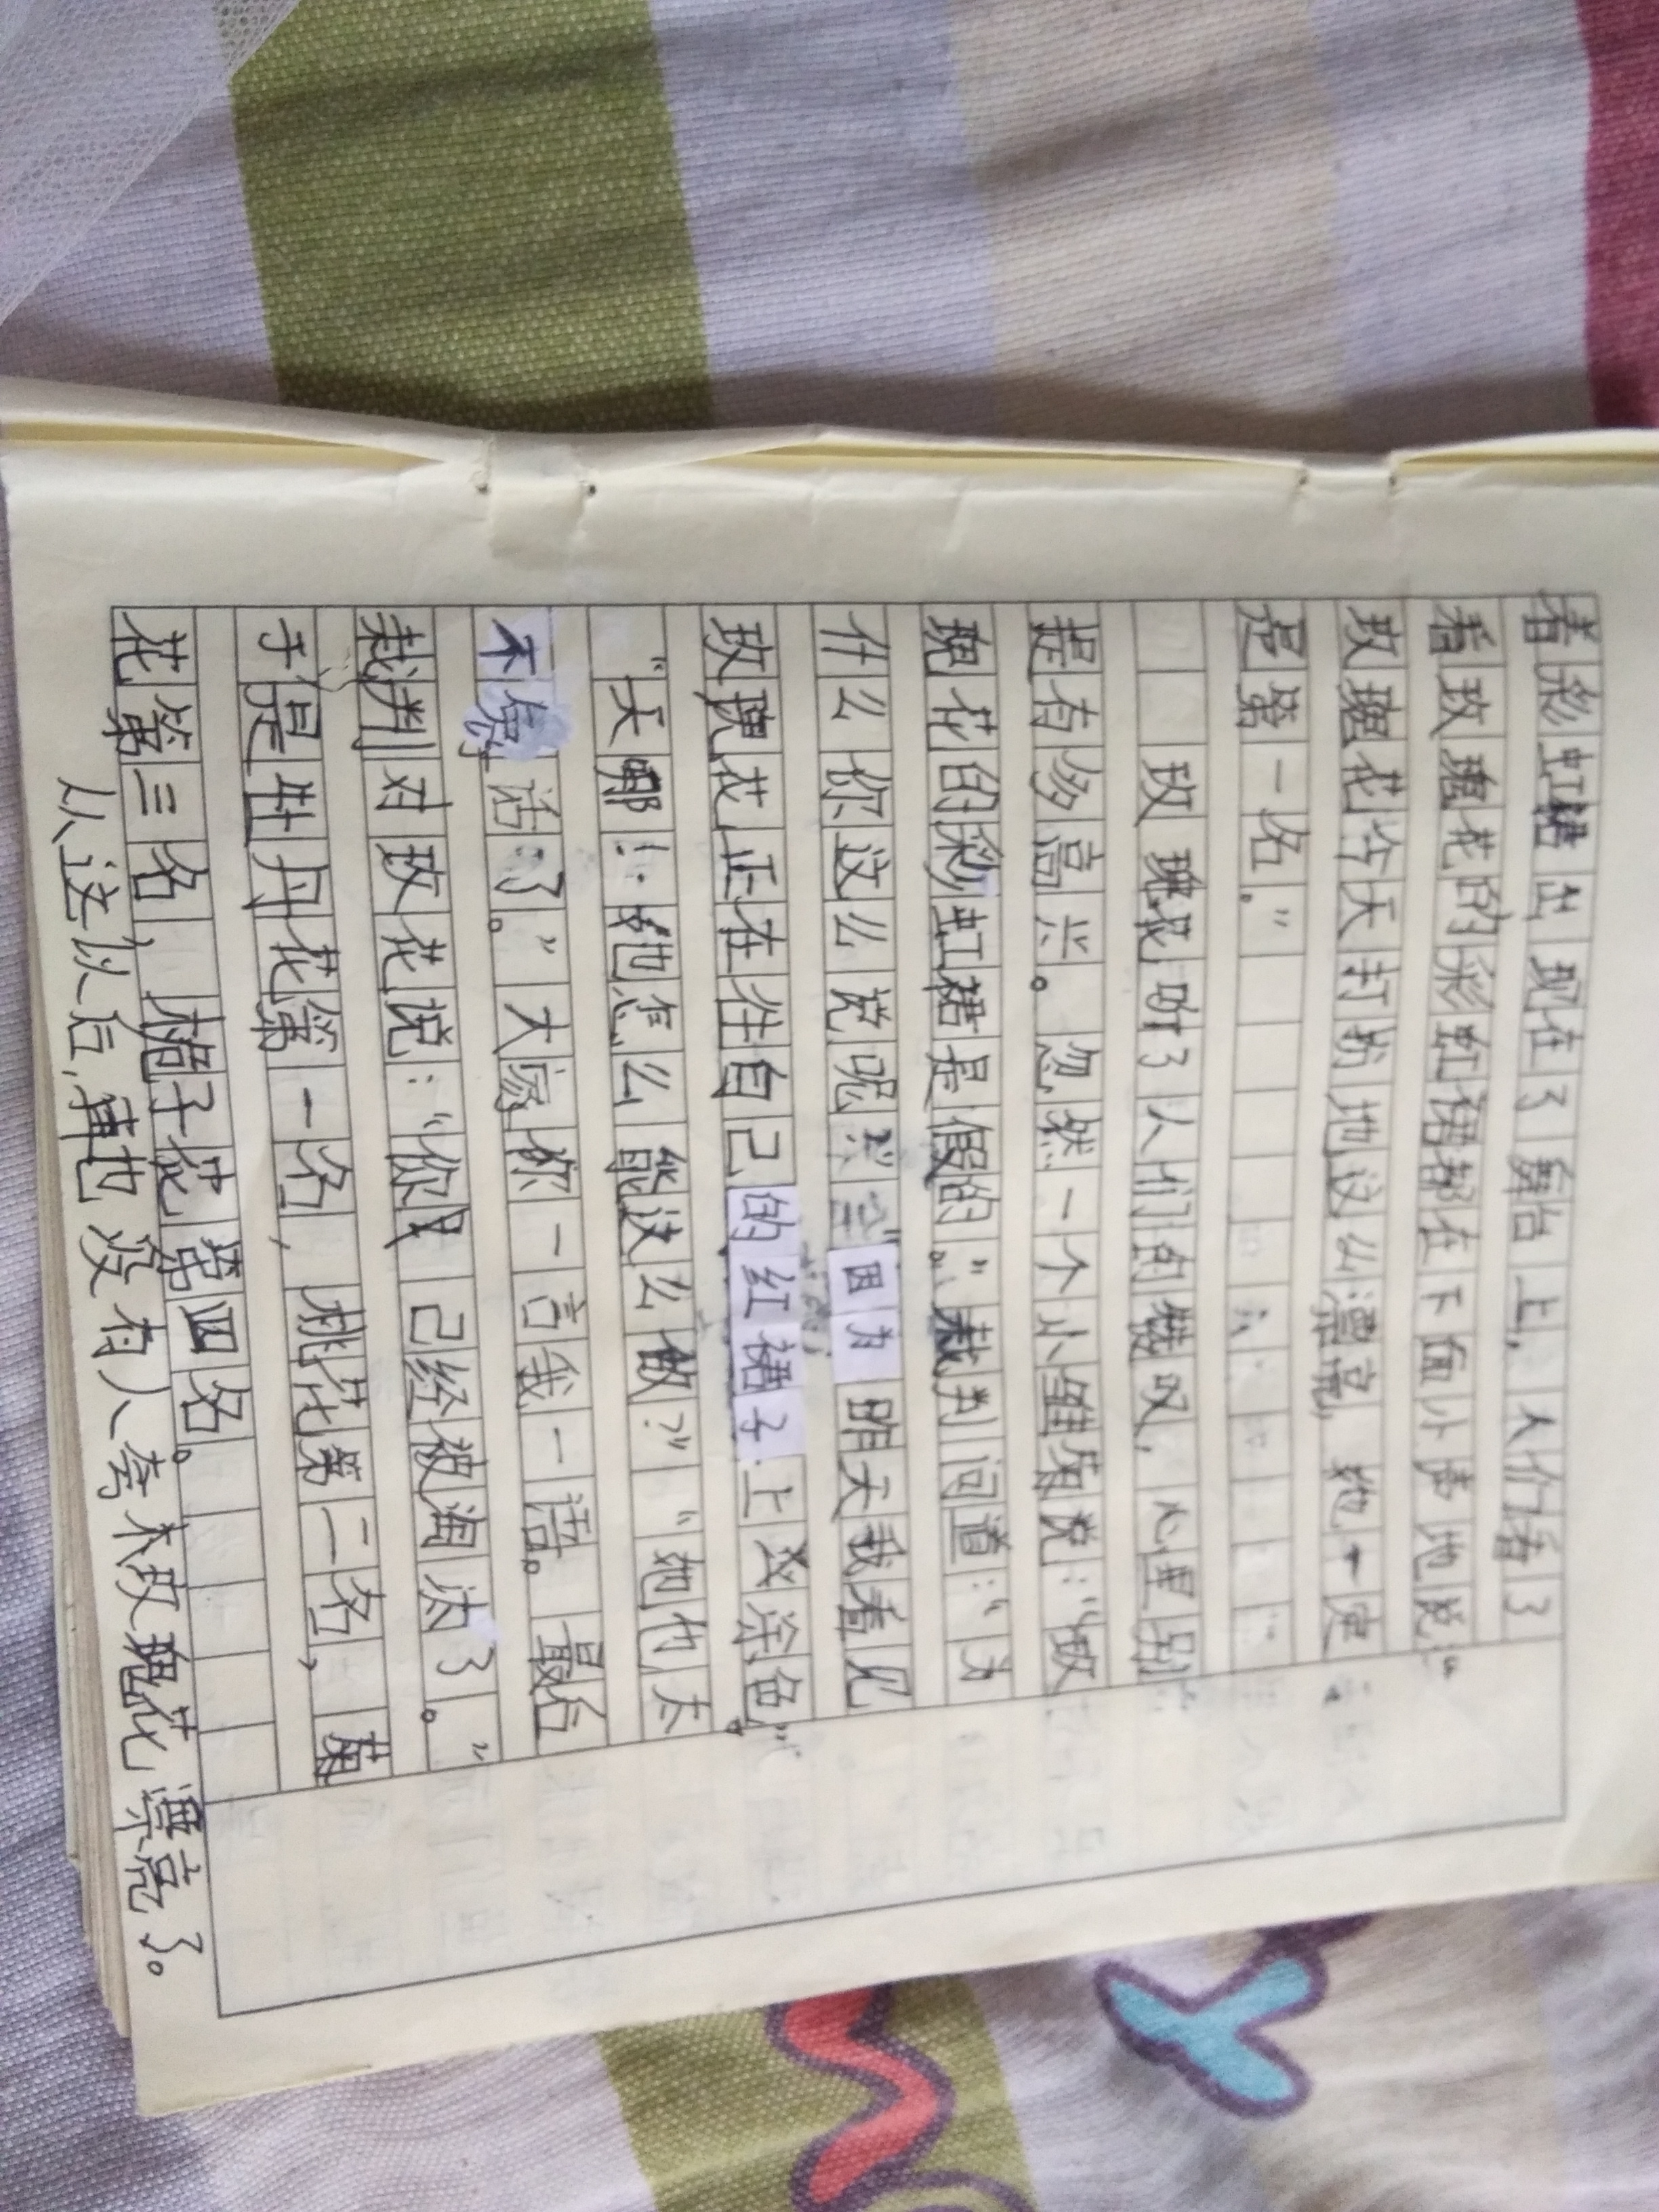 着彩虹裙出现在了舞台上，人们看了
看玫瑰花的彩虹裙都在下面小声地说：“
玫瑰花今天打扮地这么漂亮，她一定
是第一名。”
玫瑰听了人们的赞叹，心里别
提有多高兴。忽然一个小维鸟说：“玫
瑰花的彩虹裙是假的。”裁判问道：“为
什么你这么说呢？”“因为昨天我看见
玫瑰花正在往自己的红裙子上义涂色。”
“天哪！她怎么能这么做？”“她也太
不像话了。”大家你一言我一语。最后
裁判对玫花说：“你已经被淘汰了。”
于是牡丹花第一名，桃花第二名，菊
花第三名，栀子花第四名。
从这以后，再也没有人夸木玫瑰花漂亮了。